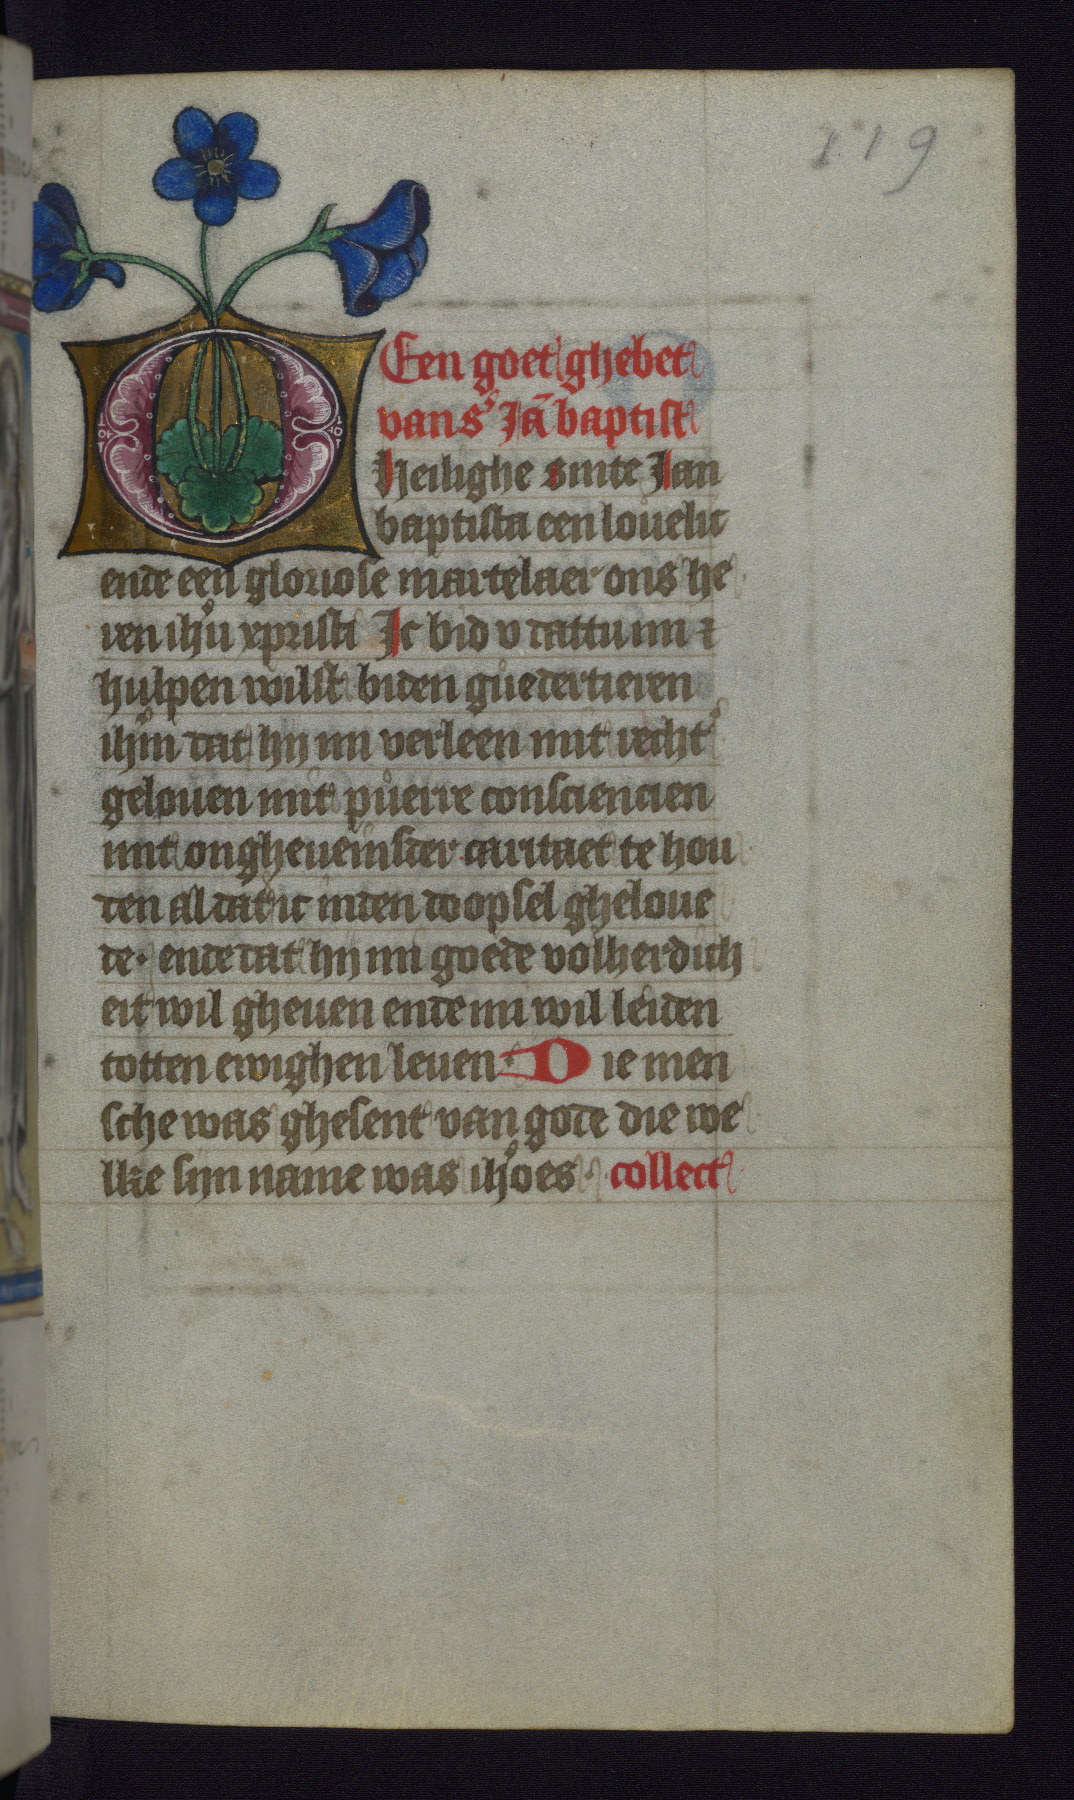 119
Een goet ghebet
van sͤ Jā baptist
O Heilighe sinte Jan
baptista een louelic
ende een gloriose martelaer ons he
ren ihū xpristi Jc bid v dattu mi ⁊
hulpen wilst biden guedertieren
ihm dat hij mi verleen mit recht
gelouen mit puerre consciencien
mit ongheueinsder caritaet te hou
den al dat ic inden doopsel gheloue
de· ende dat hij mi goede volherdich
eit wil gheuen ende mi wil leiden
totten ewighen leuen· Die men
sche was ghesent van gode die we
lke sijn name was ihoes · collect